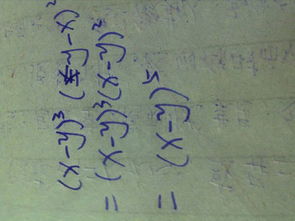 (x-y)³(y-x)²
=(x-y)³(x-y)²
=(x-y)⁵